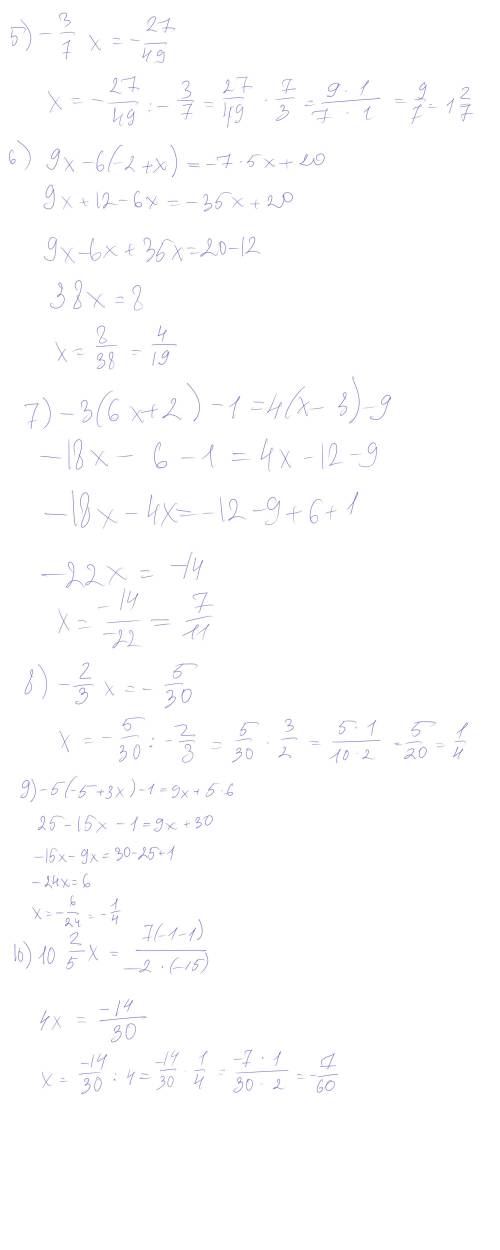 5) -3/7 x = -27/49
x = -27/49 : -3/7 = 27/49 · 7/3 = 9·1/7·1 = 9/7 = 1 2/7
6) 9x-6(-2+x) = -7·5x+20
9x+12-6x = -35x+20
9x-6x+35x=20-12
38x = 8
x = 8/38 = 4/19
7) -3(6x+2)-1=4(x-3)-9
-18x - 6 - 1 = 4x-12-9
-18x-4x=-12-9+6+1
-22x = -14
x = -14/-22 = 7/11
8) -2/3 x = -5/30
x = -5/30 : -2/3 = 5/30 · 3/2 = 5·1/10·2 = 5/20 = 1/4
9) -5(-5+3x)-1=9x+5·6
25-15x-1=9x+30
-15x-9x=30-25+1
-24x=6
x=-6/24=-1/4
10) 10 2/5 x = 7(-1-1)/-2·(-15)
4x = -14/30
x = -14/30 : 4 = -14/30 · 1/4 = -7·1/30·2 = -7/60